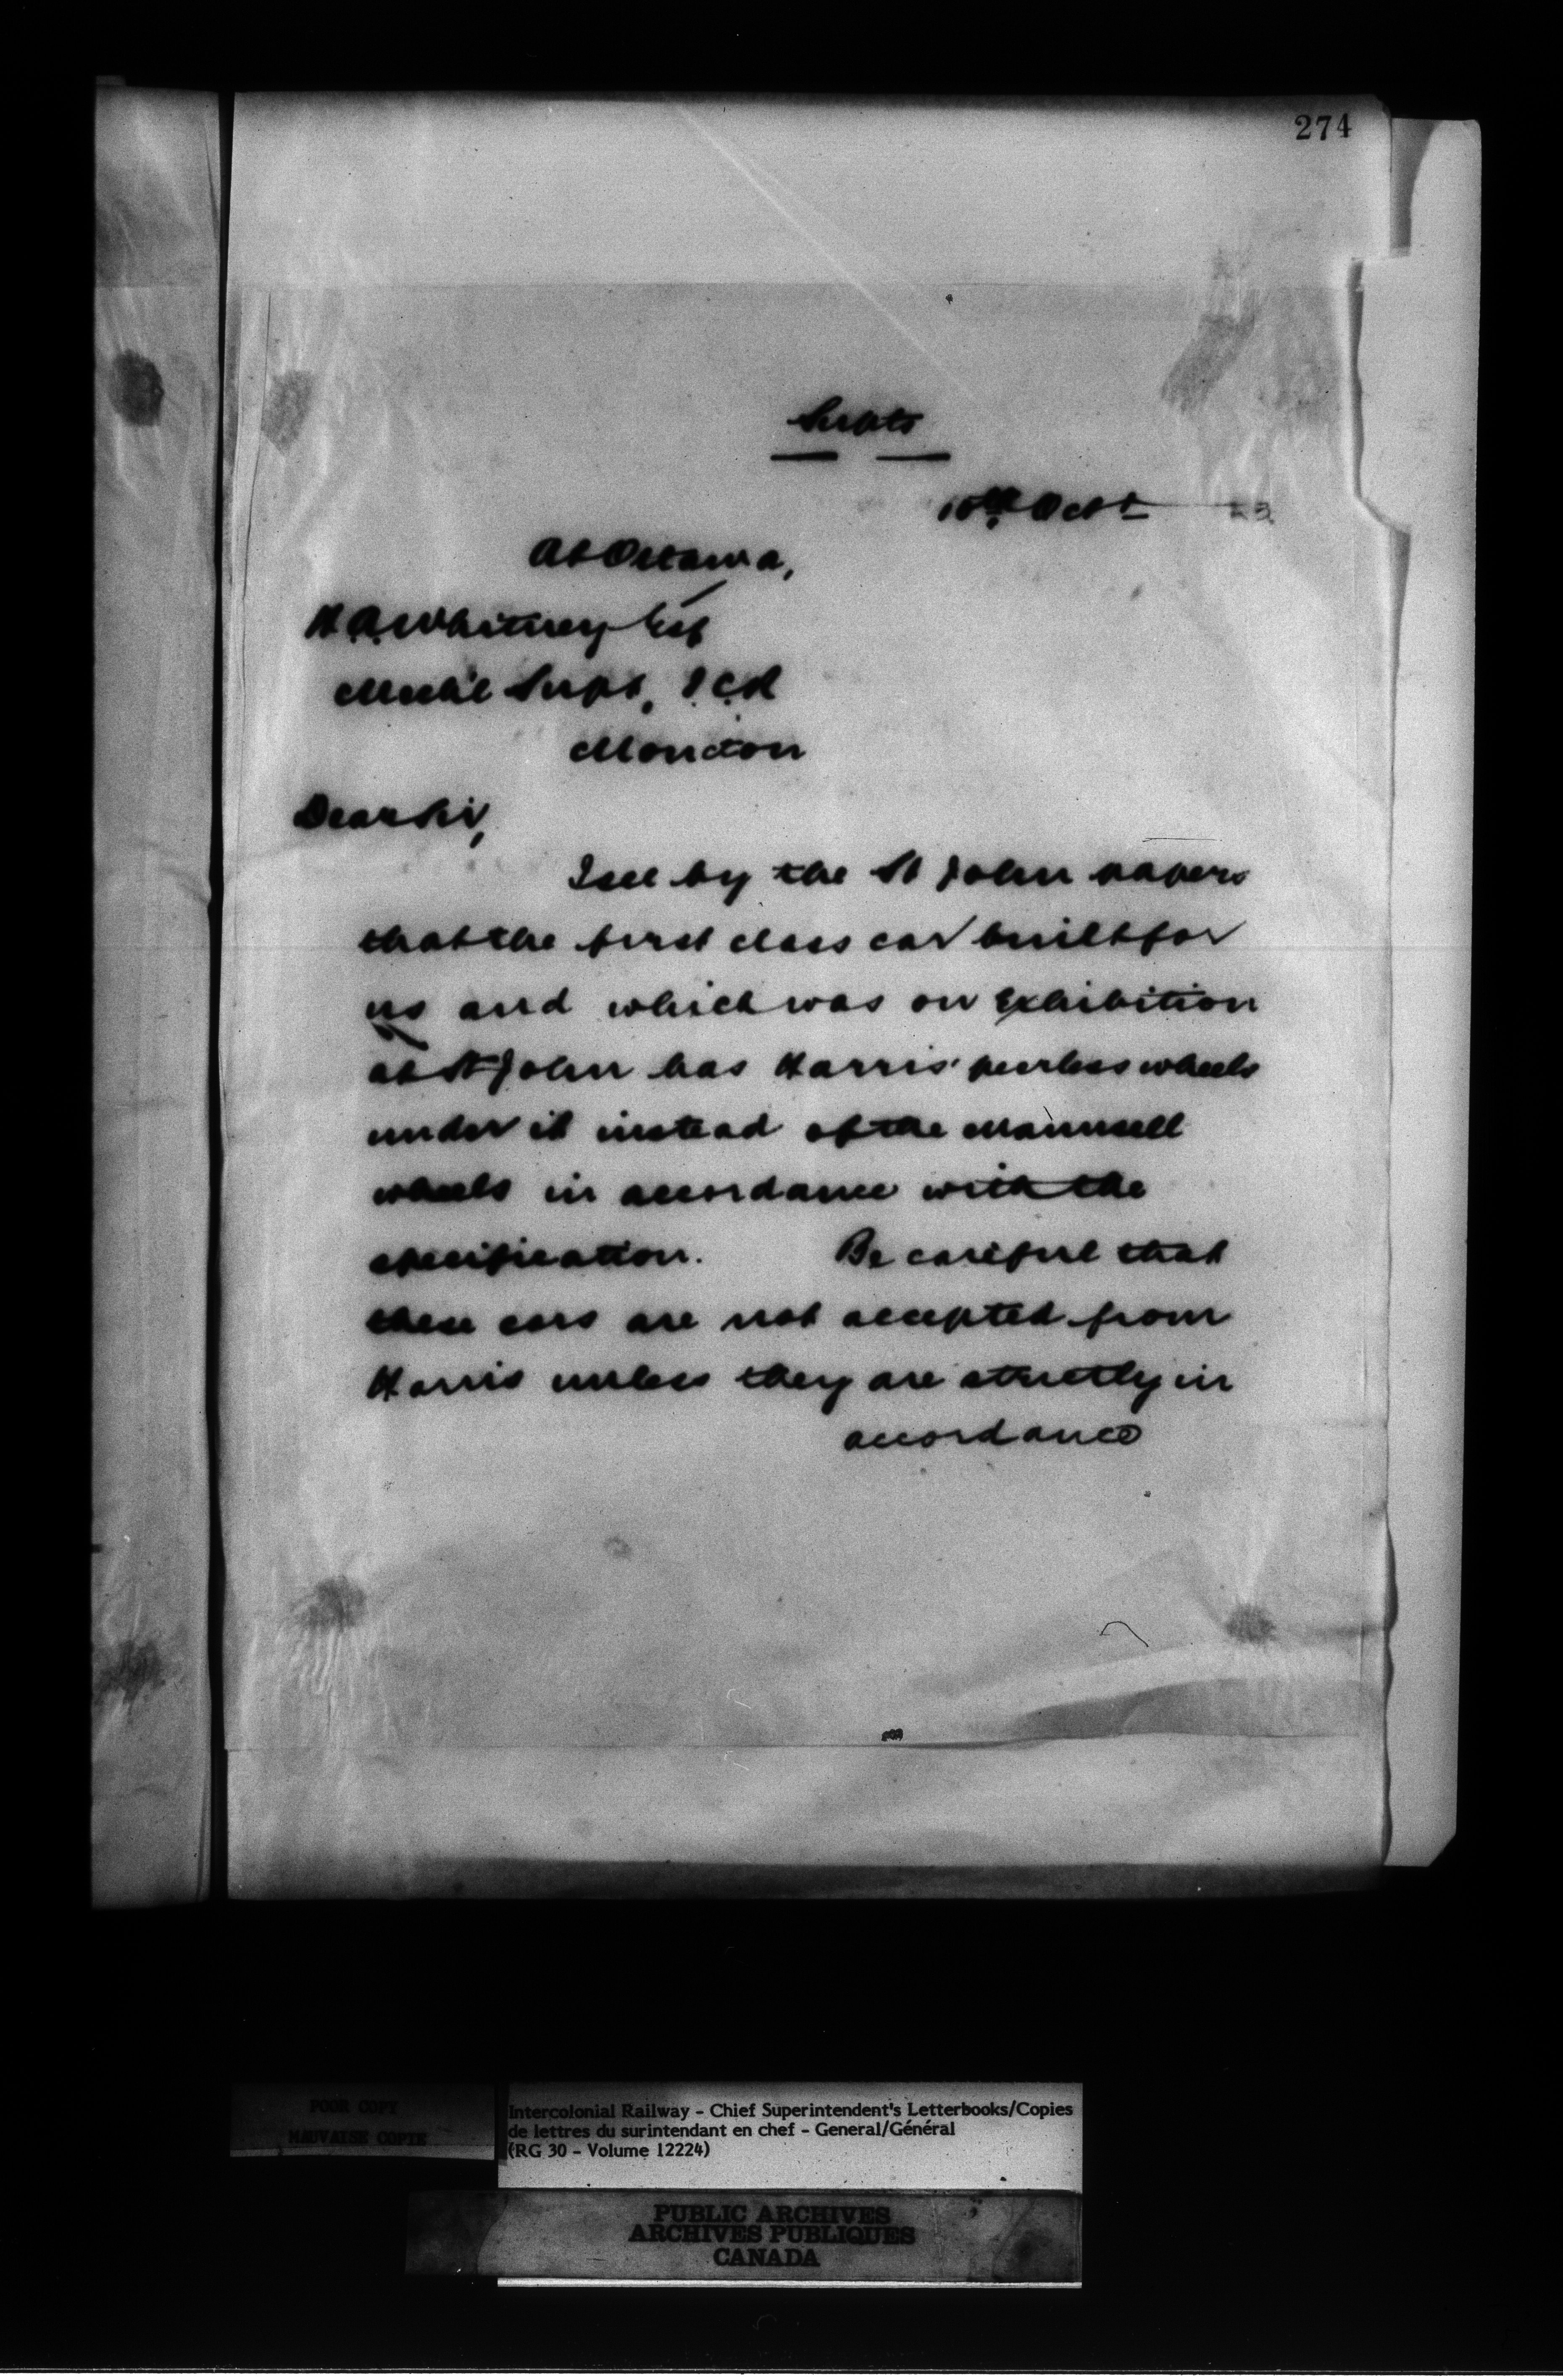 274
Supts
10th Oct 83
At Ottawa,
H A Whitney Esq
Mechl Supt, I.C.R
Moncton
Dear Sir,
I see by the St John papers
that the first class car built for
us and which was on exhibition
at St John has Harris' peerless wheels
under it instead of the Mannsell
wheels in accordance with the
specification. Be careful that
these cars are not accepted from
Harris unless they are strictly in
accordance
POOR COPY
MAUVAISE COPIE
Intercolonial Railway - Chief Superintendent's Letterbooks/Copies
de lettres du surintendant en chef - General/Général
(RG 30 - Volume 12224)
PUBLIC ARCHIVES
ARCHIVES PUBLIQUES
CANADA